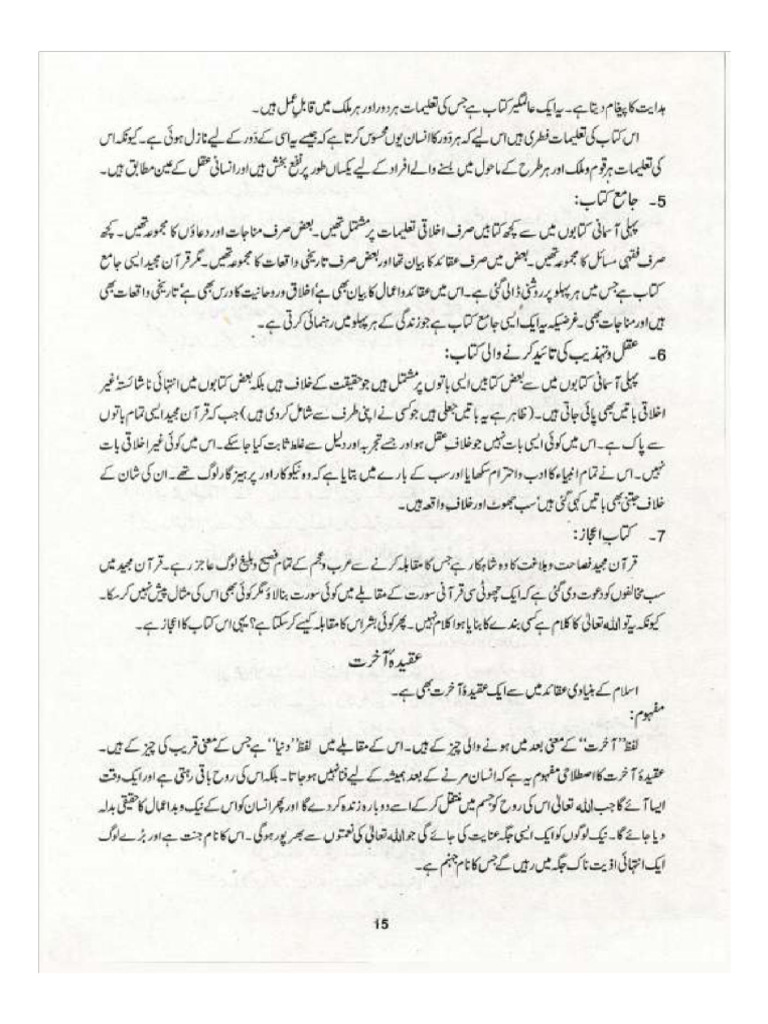 ہدایت کا پیغام دیتا ہے۔ یہ ایک عالمگیر کتاب ہے جس کی تعلیمات ہر دور اور ہر ملک میں قابلِ عمل ہیں۔
اس کتاب کی تعلیمات فطری ہیں اس لیے کہ ہر دَور کا انسان یوں محسوس کرتا ہے کہ جیسے یہ اسی کے دَور کے لیے نازل ہوئی ہے۔ کیونکہ اس
کی تعلیمات ہر قوم و ملک اور ہر طرح کے ماحول میں بسنے والے افراد کے لیے یکساں طور پر نفع بخش ہیں اور انسانی عقل کے عین مطابق ہیں۔
5- جامع کتاب:
پہلی آسمانی کتابوں میں سے کچھ کتابیں صرف اخلاقی تعلیمات پر مشتمل تھیں۔ بعض صرف مناجات اور دعاؤں کا مجموعہ تھیں۔ کچھ
صرف فقہی مسائل کا مجموعہ تھیں۔ بعض میں صرف عقائد کا بیان تھا اور بعض صرف تاریخی واقعات کا مجموعہ تھیں۔ مگر قرآن مجید ایسی جامع
کتاب ہے جس میں ہر پہلو پر روشنی ڈالی گئی ہے۔ اس میں عقائد و اعمال کا بیان بھی ہے، اخلاق و روحانیت کا درس بھی ہے، تاریخی واقعات بھی
ہیں اور مناجات بھی۔ غرضیکہ یہ ایک ایسی جامع کتاب ہے جو زندگی کے ہر پہلو میں رہنمائی کرتی ہے۔
6- عقل و تہذیب کی تائید کرنے والی کتاب:
پہلی آسمانی کتابوں میں سے بعض کتابیں ایسی باتوں پر مشتمل ہیں جو حقیقت کے خلاف ہیں بلکہ بعض کتابوں میں انتہائی ناشائستہ، غیر
اخلاقی باتیں بھی پائی جاتی ہیں۔ (ظاہر ہے یہ باتیں جعلی ہیں جو کسی نے اپنی طرف سے شامل کر دی ہیں) جب کہ قرآن مجید ایسی تمام باتوں
سے پاک ہے۔ اس میں کوئی ایسی بات نہیں جو خلافِ عقل ہو اور جسے تجربہ اور دلیل سے غلط ثابت کیا جا سکے۔ اس میں کوئی غیر اخلاقی بات
نہیں۔ اس نے تمام انبیاء کا ادب و احترام سکھایا اور سب کے بارے میں بتایا ہے کہ وہ نیکوکار اور پرہیز گار لوگ تھے۔ ان کی شان کے
خلاف جتنی بھی باتیں کہی گئی ہیں، سب جھوٹ اور خلافِ واقعہ ہیں۔
7- کتابِ اعجاز:
قرآن مجید فصاحت و بلاغت کا وہ شاہکار ہے جس کا مقابلہ کرنے سے عرب و عجم کے تمام فصیح و بلیغ لوگ عاجز رہے۔ قرآن مجید میں
سب مخالفوں کو دعوت دی گئی ہے کہ ایک چھوٹی سی قرآنی سورت کے مقابلے میں کوئی سورت بنا لاؤ مگر کوئی بھی اس کی مثال پیش نہیں کر سکا۔
کیونکہ یہ تو اللہ تعالیٰ کا کلام ہے کسی بندے کا بنایا ہوا کلام نہیں۔ پھر کوئی بشر اس کا مقابلہ کیسے کر سکتا ہے؟ یہی اس کتاب کا اعجاز ہے۔
عقیدۂ آخرت
اسلام کے بنیادی عقائد میں سے ایک عقیدۂ آخرت بھی ہے۔
مفہوم:
لفظ "آخرت" کے معنی بعد میں ہونے والی چیز کے ہیں۔ اس کے مقابلے میں لفظ "دنیا" ہے جس کے معنی قریب کی چیز کے ہیں۔
عقیدۂ آخرت کا اصطلاحی مفہوم یہ ہے کہ انسان مرنے کے بعد ہمیشہ کے لیے فنا نہیں ہو جاتا۔ بلکہ اس کی روح باقی رہتی ہے اور ایک وقت
ایسا آئے گا جب اللہ تعالیٰ اس کی روح کو جسم میں منتقل کر کے اسے دوبارہ زندہ کر دے گا اور پھر انسان کو اس کے نیک و بد اعمال کا حقیقی بدلہ
دیا جائے گا۔ نیک لوگوں کو ایک ایسی جگہ عنایت کی جائے گی جو اللہ تعالیٰ کی نعمتوں سے بھرپور ہوگی۔ اس کا نام جنت ہے اور بُرے لوگ
ایک انتہائی اذیت ناک جگہ میں رہیں گے جس کا نام جہنم ہے۔
15